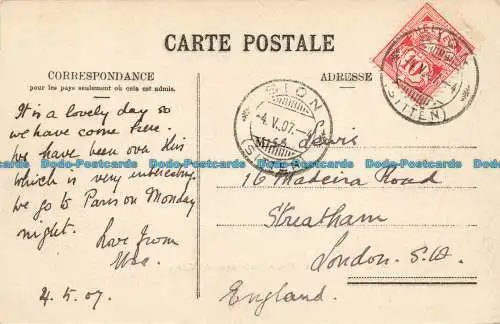 CARTE POSTALE
CORRESPONDANCE
pour les pays seulement où cela est admis.
ADRESSE
It is a lovely day so
we have come here.
We have been over this
which is very interesting
we go to Paris on Monday
night.
Love from
4.5.07.
10
(SITTEN)
SION
-4.V.07.-
Miss Lewis
16 Madeira Road
Streatham
London. S.W.
England.
Dodo-Postcards Dodo-Postcards Dodo-Postcards Dodo-Postcards Dodo-Postcards